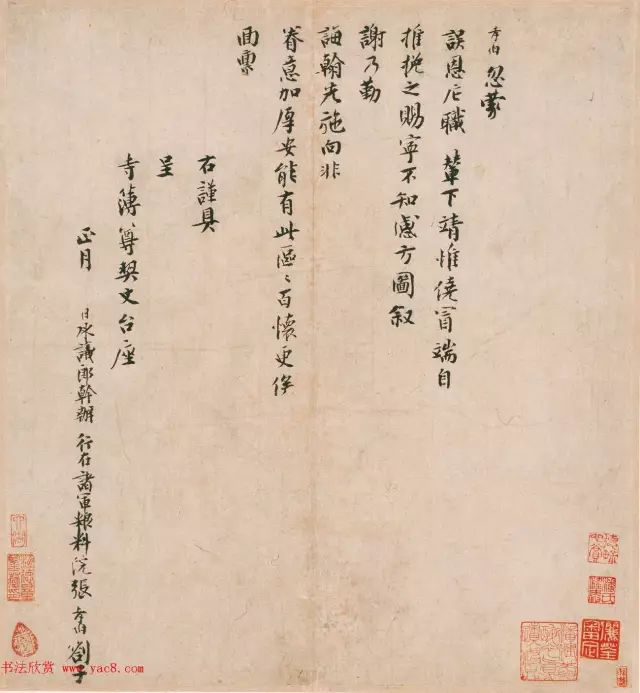 孝伯 忽蒙
誤恩庀職 輦下靖惟僥冒端自
推挽之賜寧不知感方圖叙
謝乃勤
誨翰先施向非
眷意加厚安能有此區〻百懷更俟
面稟
右謹具
呈
寺簿尊契丈台座
正月 日承議郎幹辦 行在諸軍糧料院張 孝伯 劄子
书法欣赏 www.yac8.com